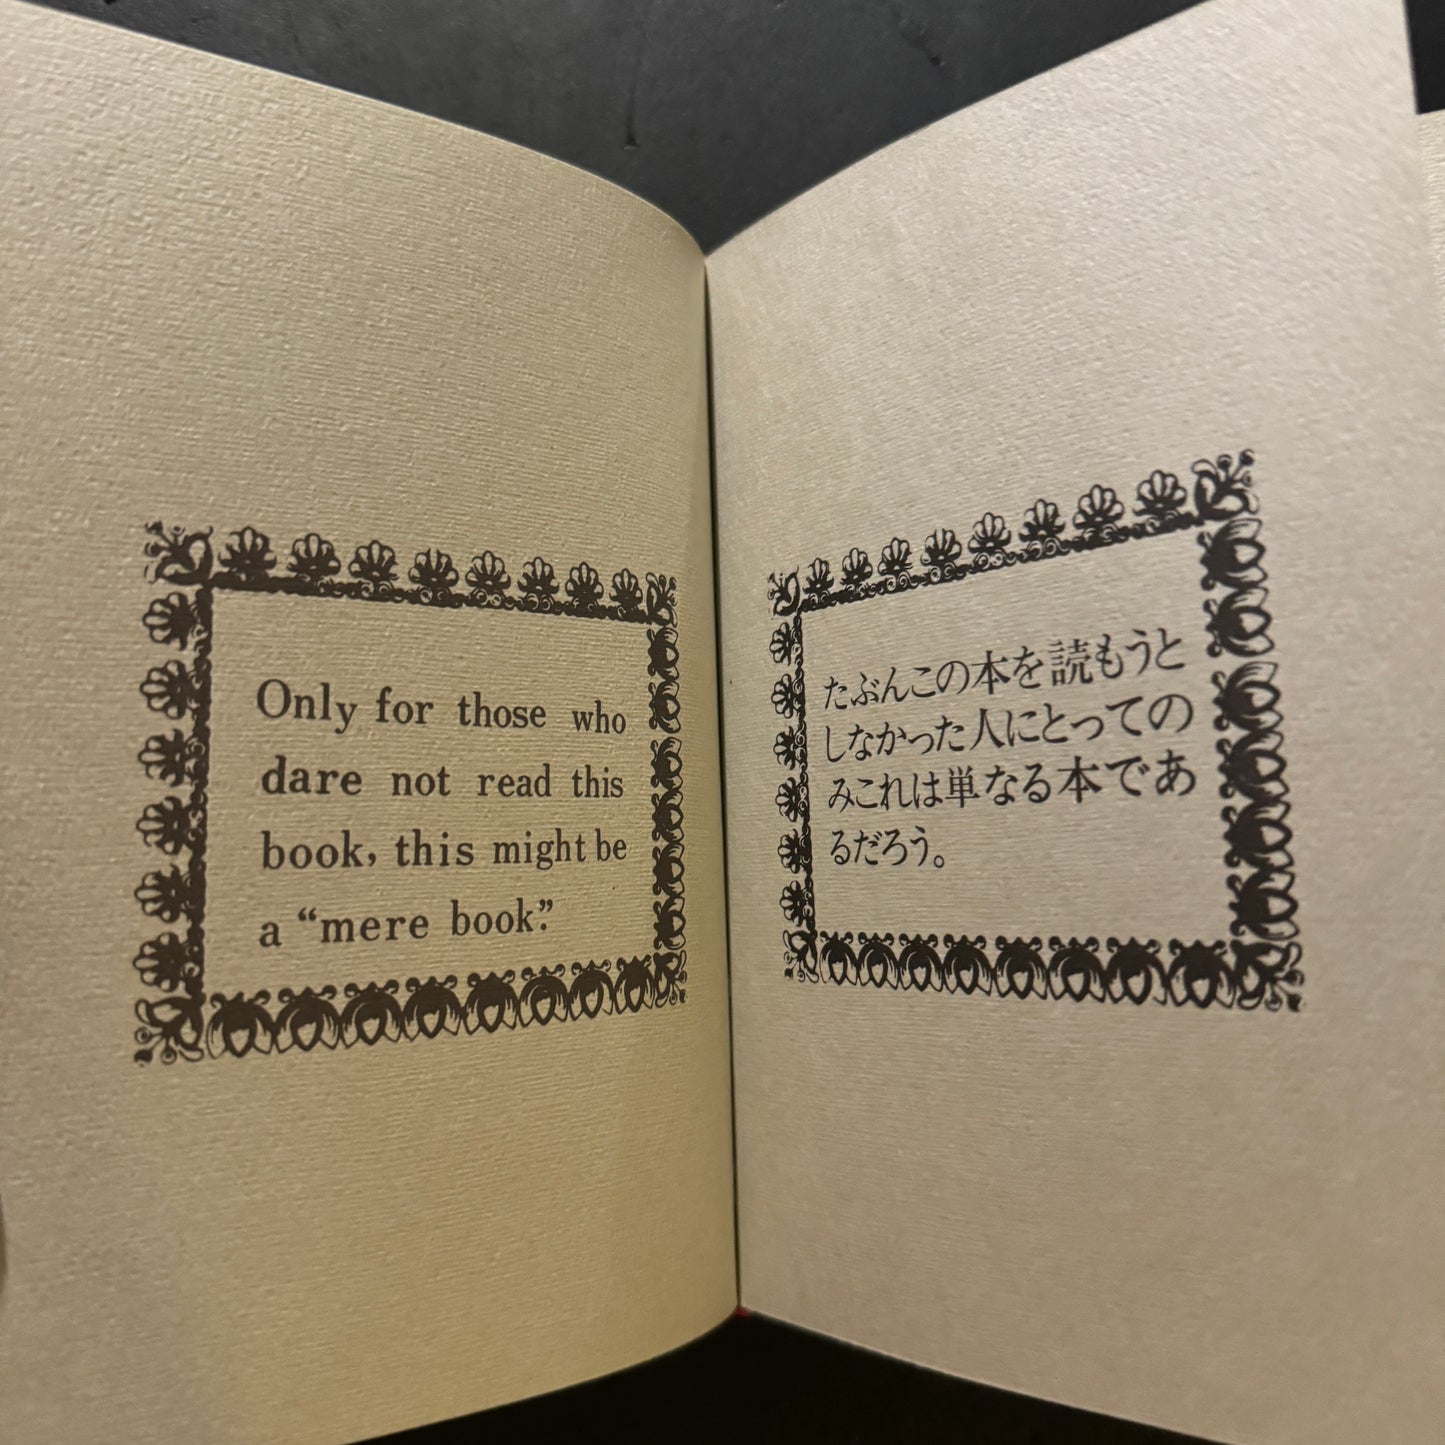 Only for those who
dare not read this
book, this might be
a “mere book”.
たぶんこの本を読もうと
しなかった人にとっての
みこれは単なる本であ
るだろう。